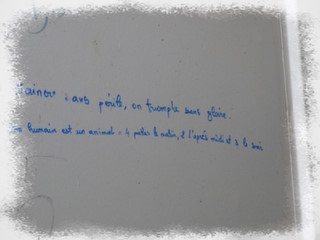 vaincre sans péril, on triomphe sans gloire.
humain est un animal à 4 pattes le matin, 2 l'après midi et 3 le soir